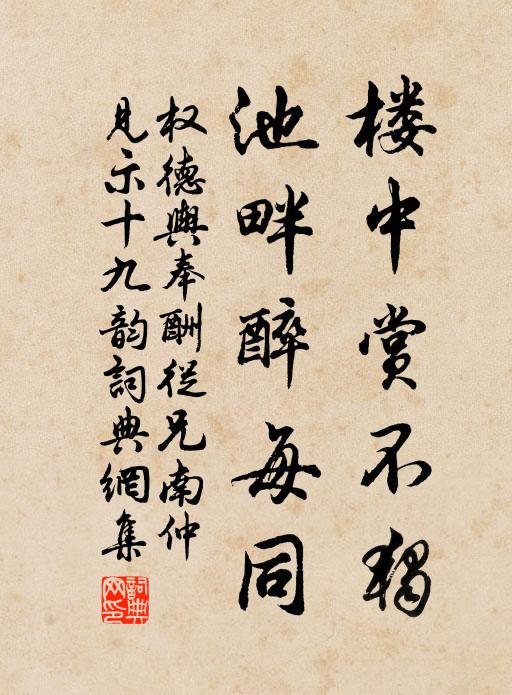 楼中赏不独
池畔醉每同
权德舆奉酬从兄南仲
见示十九韵词典網集
詞典网印